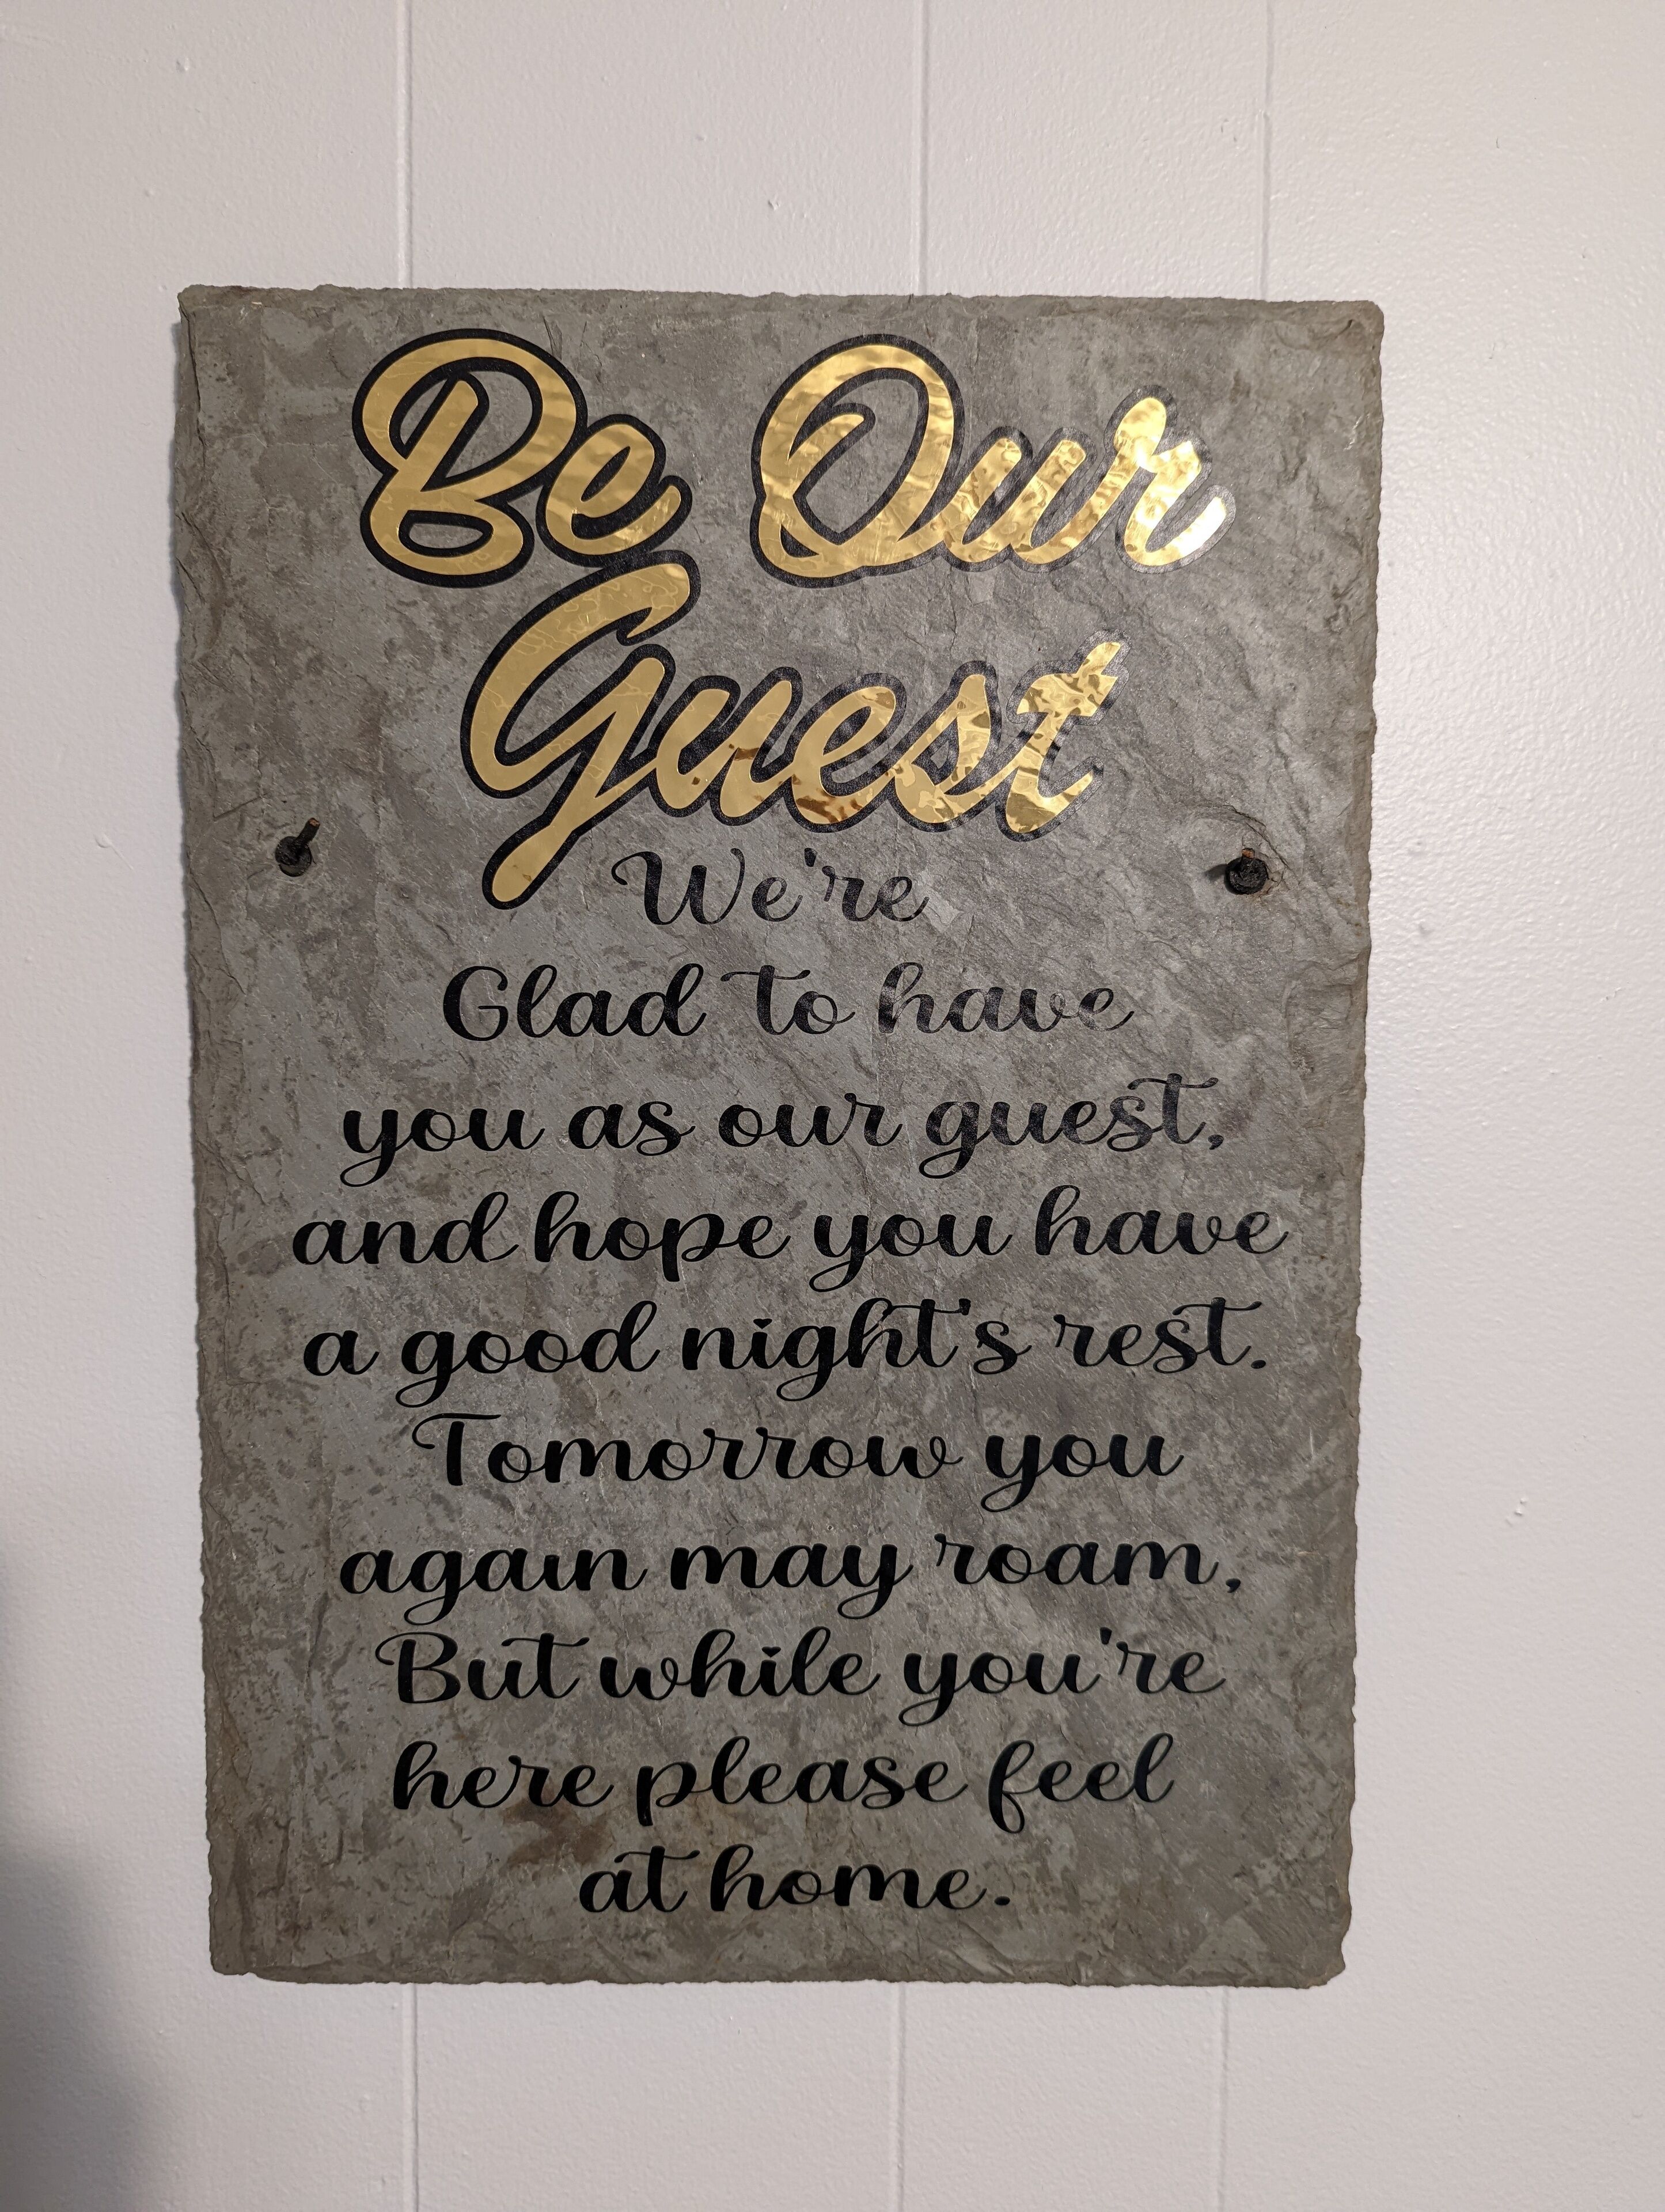 Be Our
Guest
We're
Glad to have
you as our guest,
and hope you have
a good night's rest.
Tomorrow you
again may roam,
But while you're
here please feel
at home.